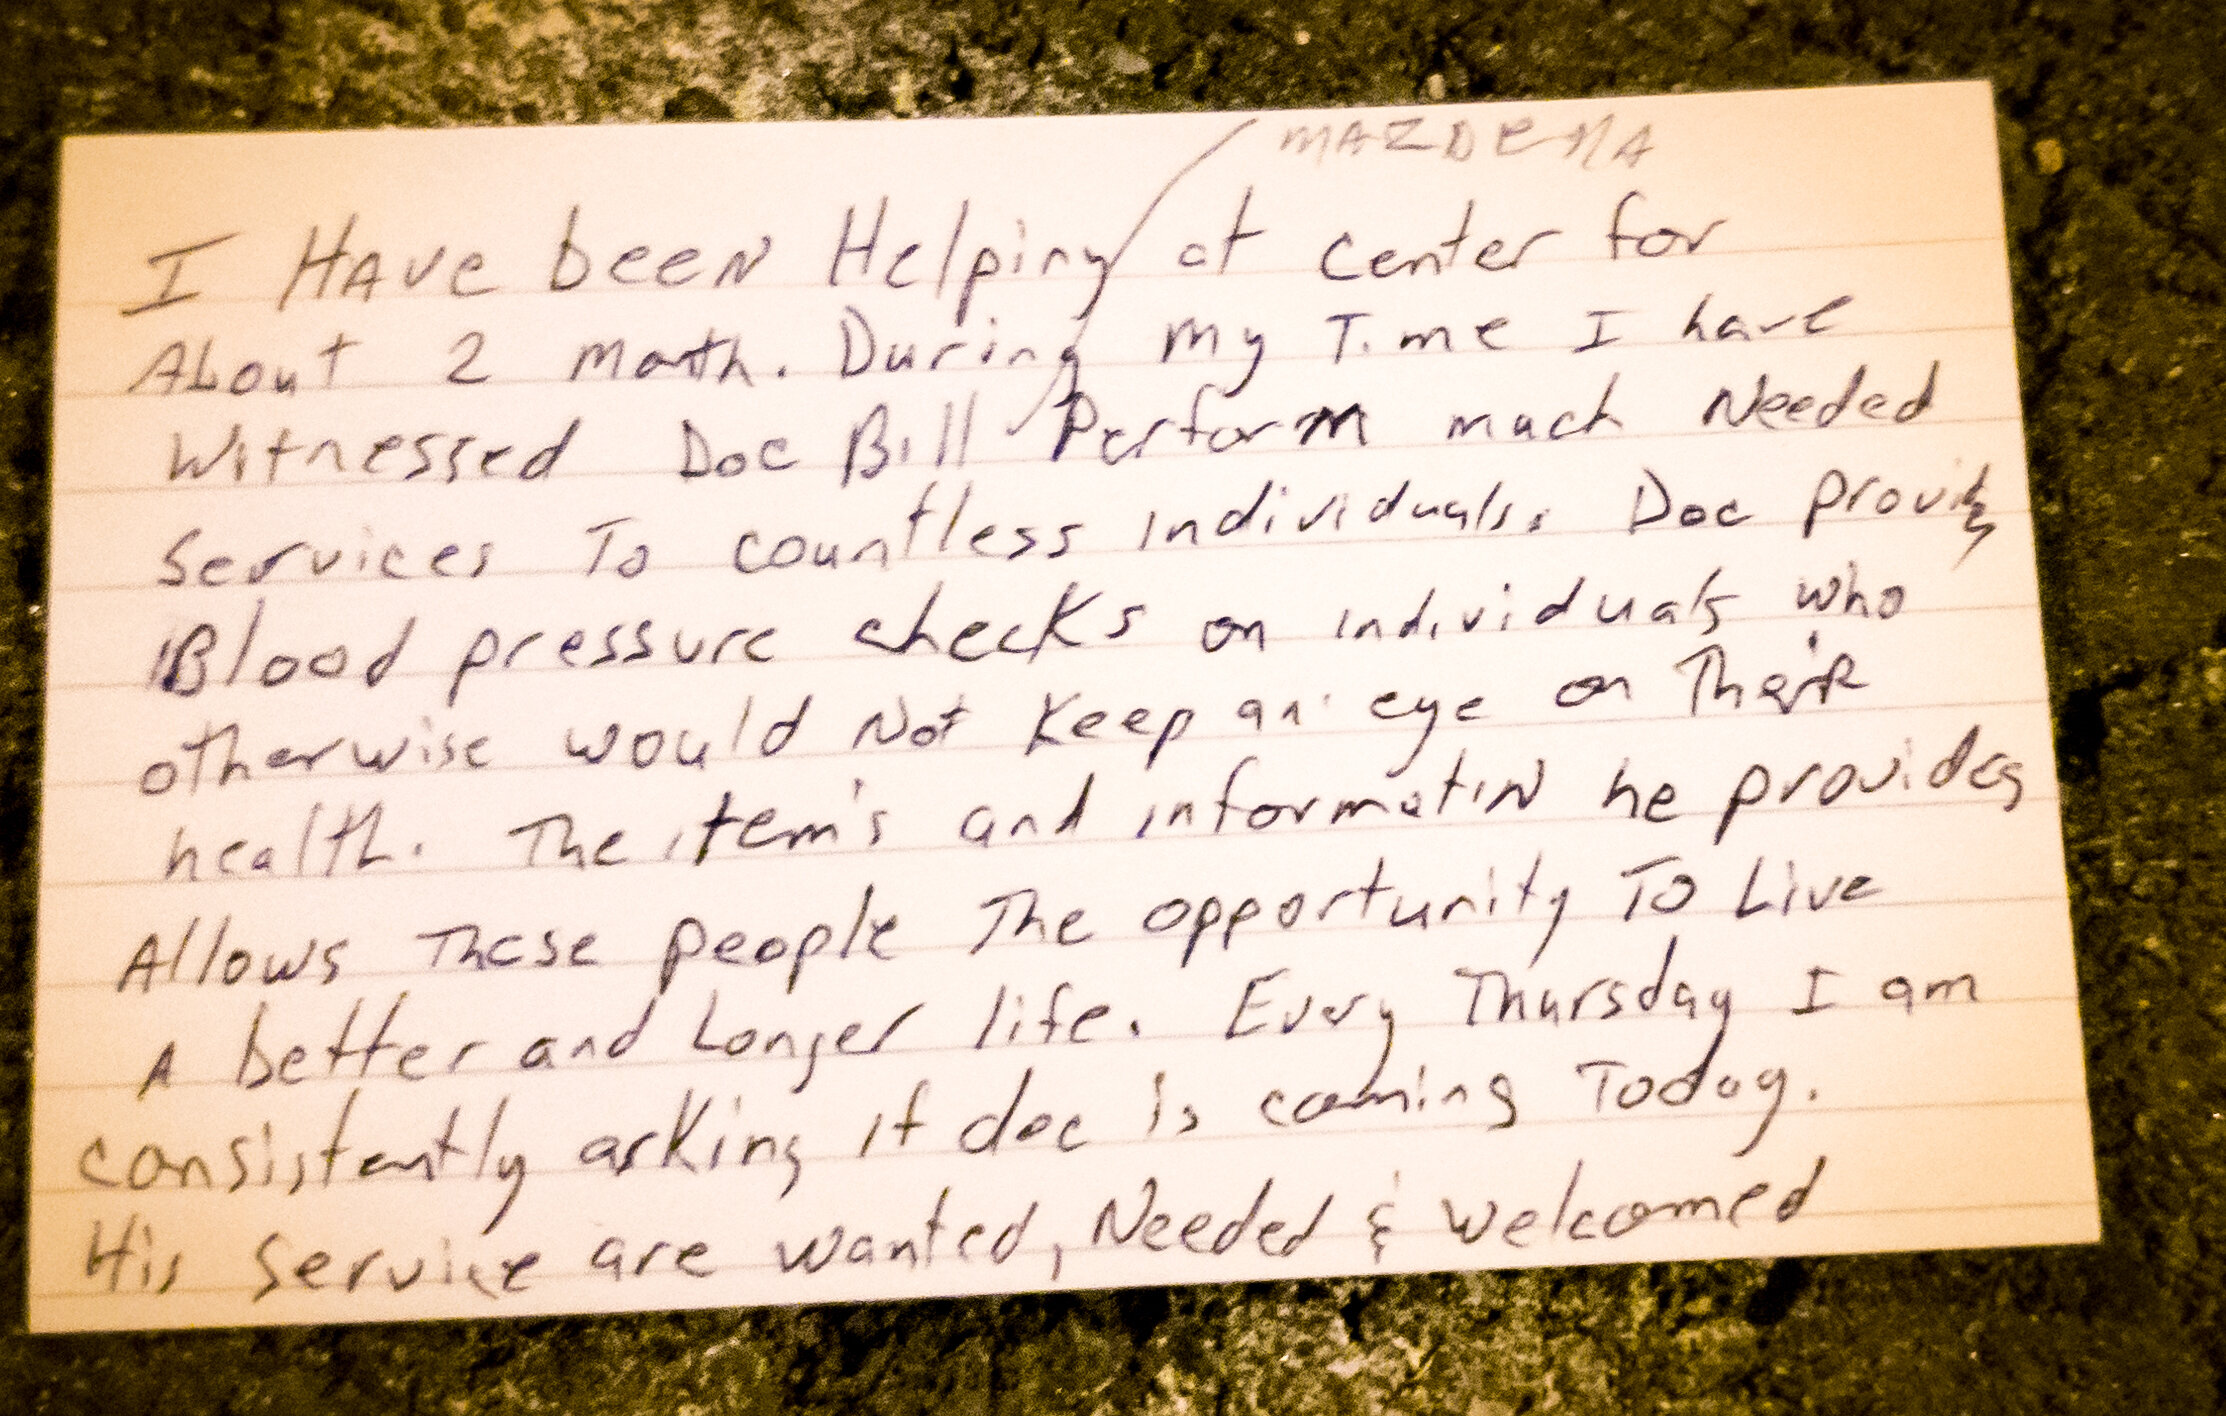 MAZDENA
I HAve beeN Helping at center for
About 2 month. During my Time I have
Witnessed Doc Bill Perform much Needed
Services To countless individuals. Doc provides
Blood pressure checks on individuals who
otherwise would Not Keep an eye on Their
health. The item's and informatiN he provides
Allows These people The opportunity To Live
A better and Longer life. Every Thursday I am
consistently asking if doc is coming Today.
His Service are wanted, Needed & welcomed